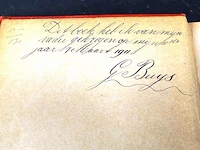 Dit boek heb ik van mijn
vader gekregen op mijn
jaar Maart 1911
G Buys